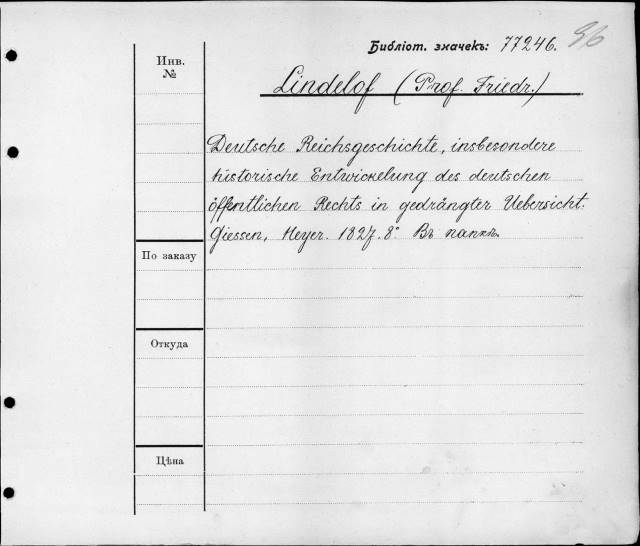 Библіот. значекъ: 77246. 96
Инв. №
Lindelof (Prof. Friedr.)
Deutsche Reichsgeschichte, insbesondere
historische Entwickelung des deutschen
öffentlichen Rechts in gedrängter Uebersicht.
Giessen, Heyer. 1827. 8°. Въ папкѣ.
По заказу
Откуда
Цѣна